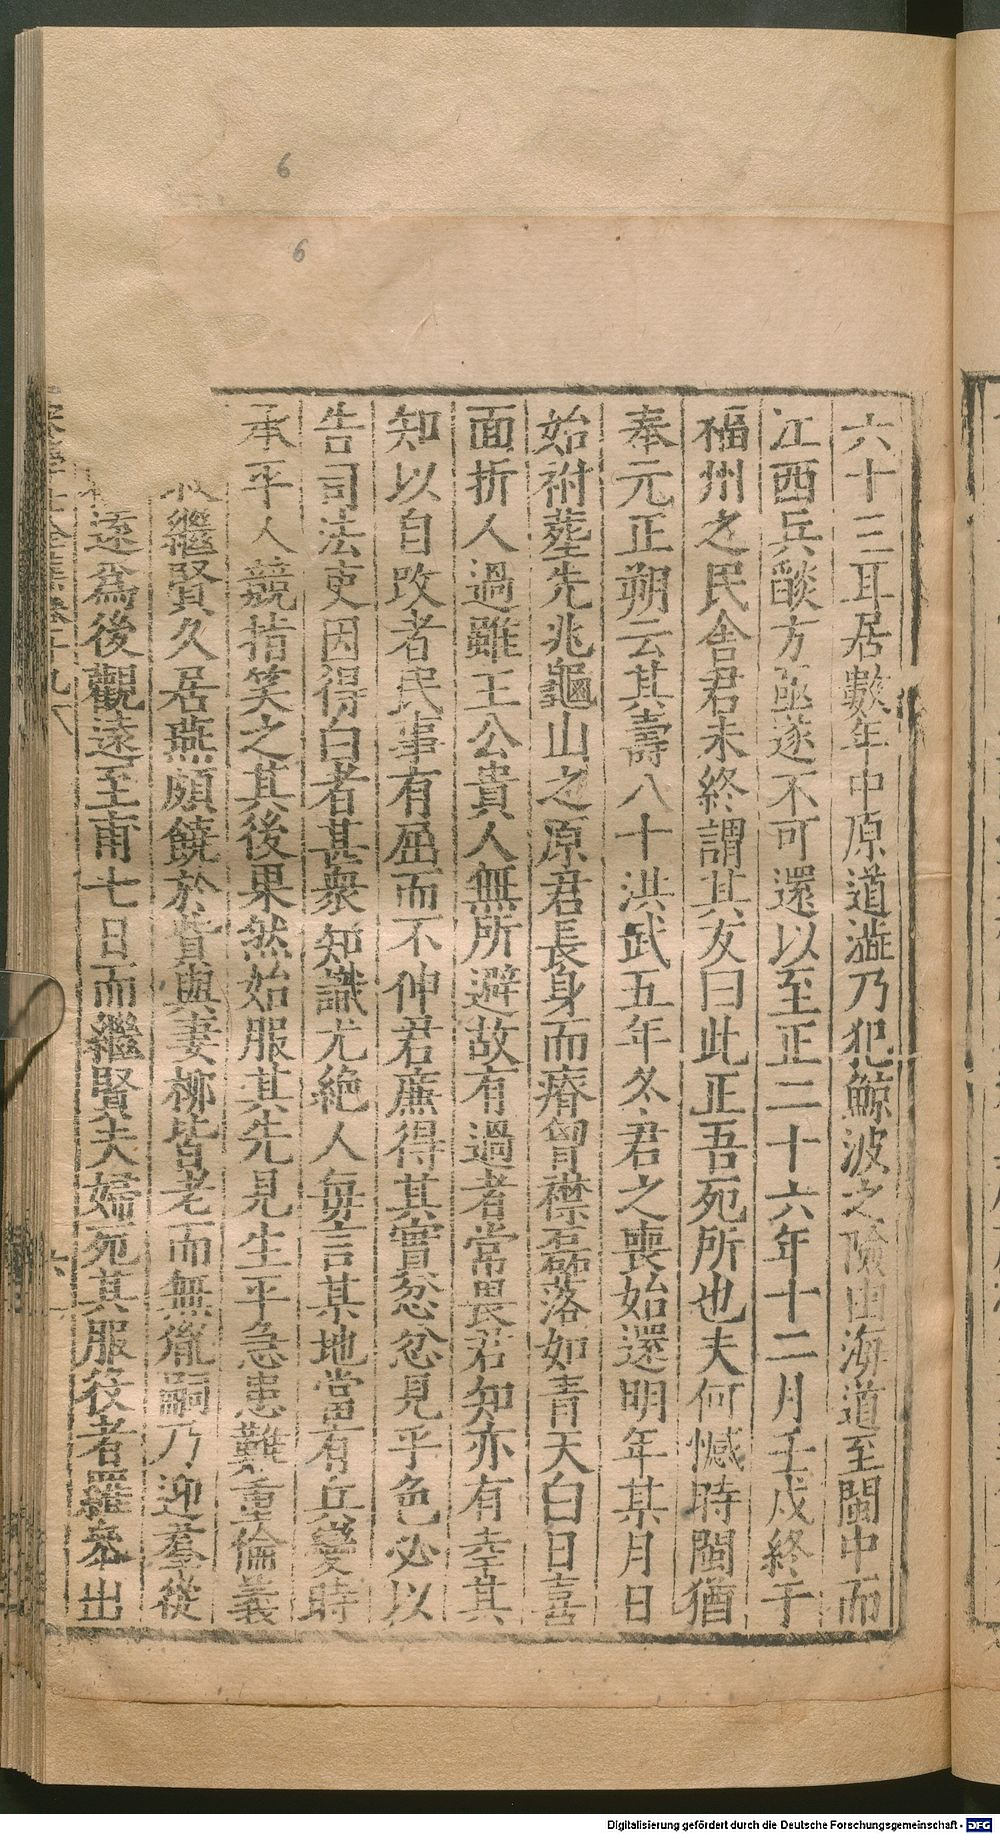 六十三耳居數年中原道澁乃犯鯨波之險由海道至閩中而
江西兵燄方亟遂不可還以至正二十六年十二月壬戌終于
福州之民舍君未終謂其友曰此正吾死所也夫何憾時閩猶
奉元正朔云其壽八十洪武五年冬君之喪始還明年某月日
始祔塟先兆龜山之原君長身而瘠胷襟磊落如青天白日喜
面折人過雖王公貴人無所避故有過者常畏君知亦有幸其
知以自攺者民事有屈而不伸君廉得其實忿忿見乎色必以
告司法吏因得白者甚衆知識尤絶人毎言某地當有兵變時
承平人競指笑之其後果然始服其先見生平急患難重倫義
繼賢久居燕頗饒於貲與妻栁皆老而無胤嗣乃迎羣從
逺爲後觀逺至甫七日而繼賢夫婦死其服役者羅叅出
6
6
Digitalisierung gefördert durch die Deutsche Forschungsgemeinschaft - DFG